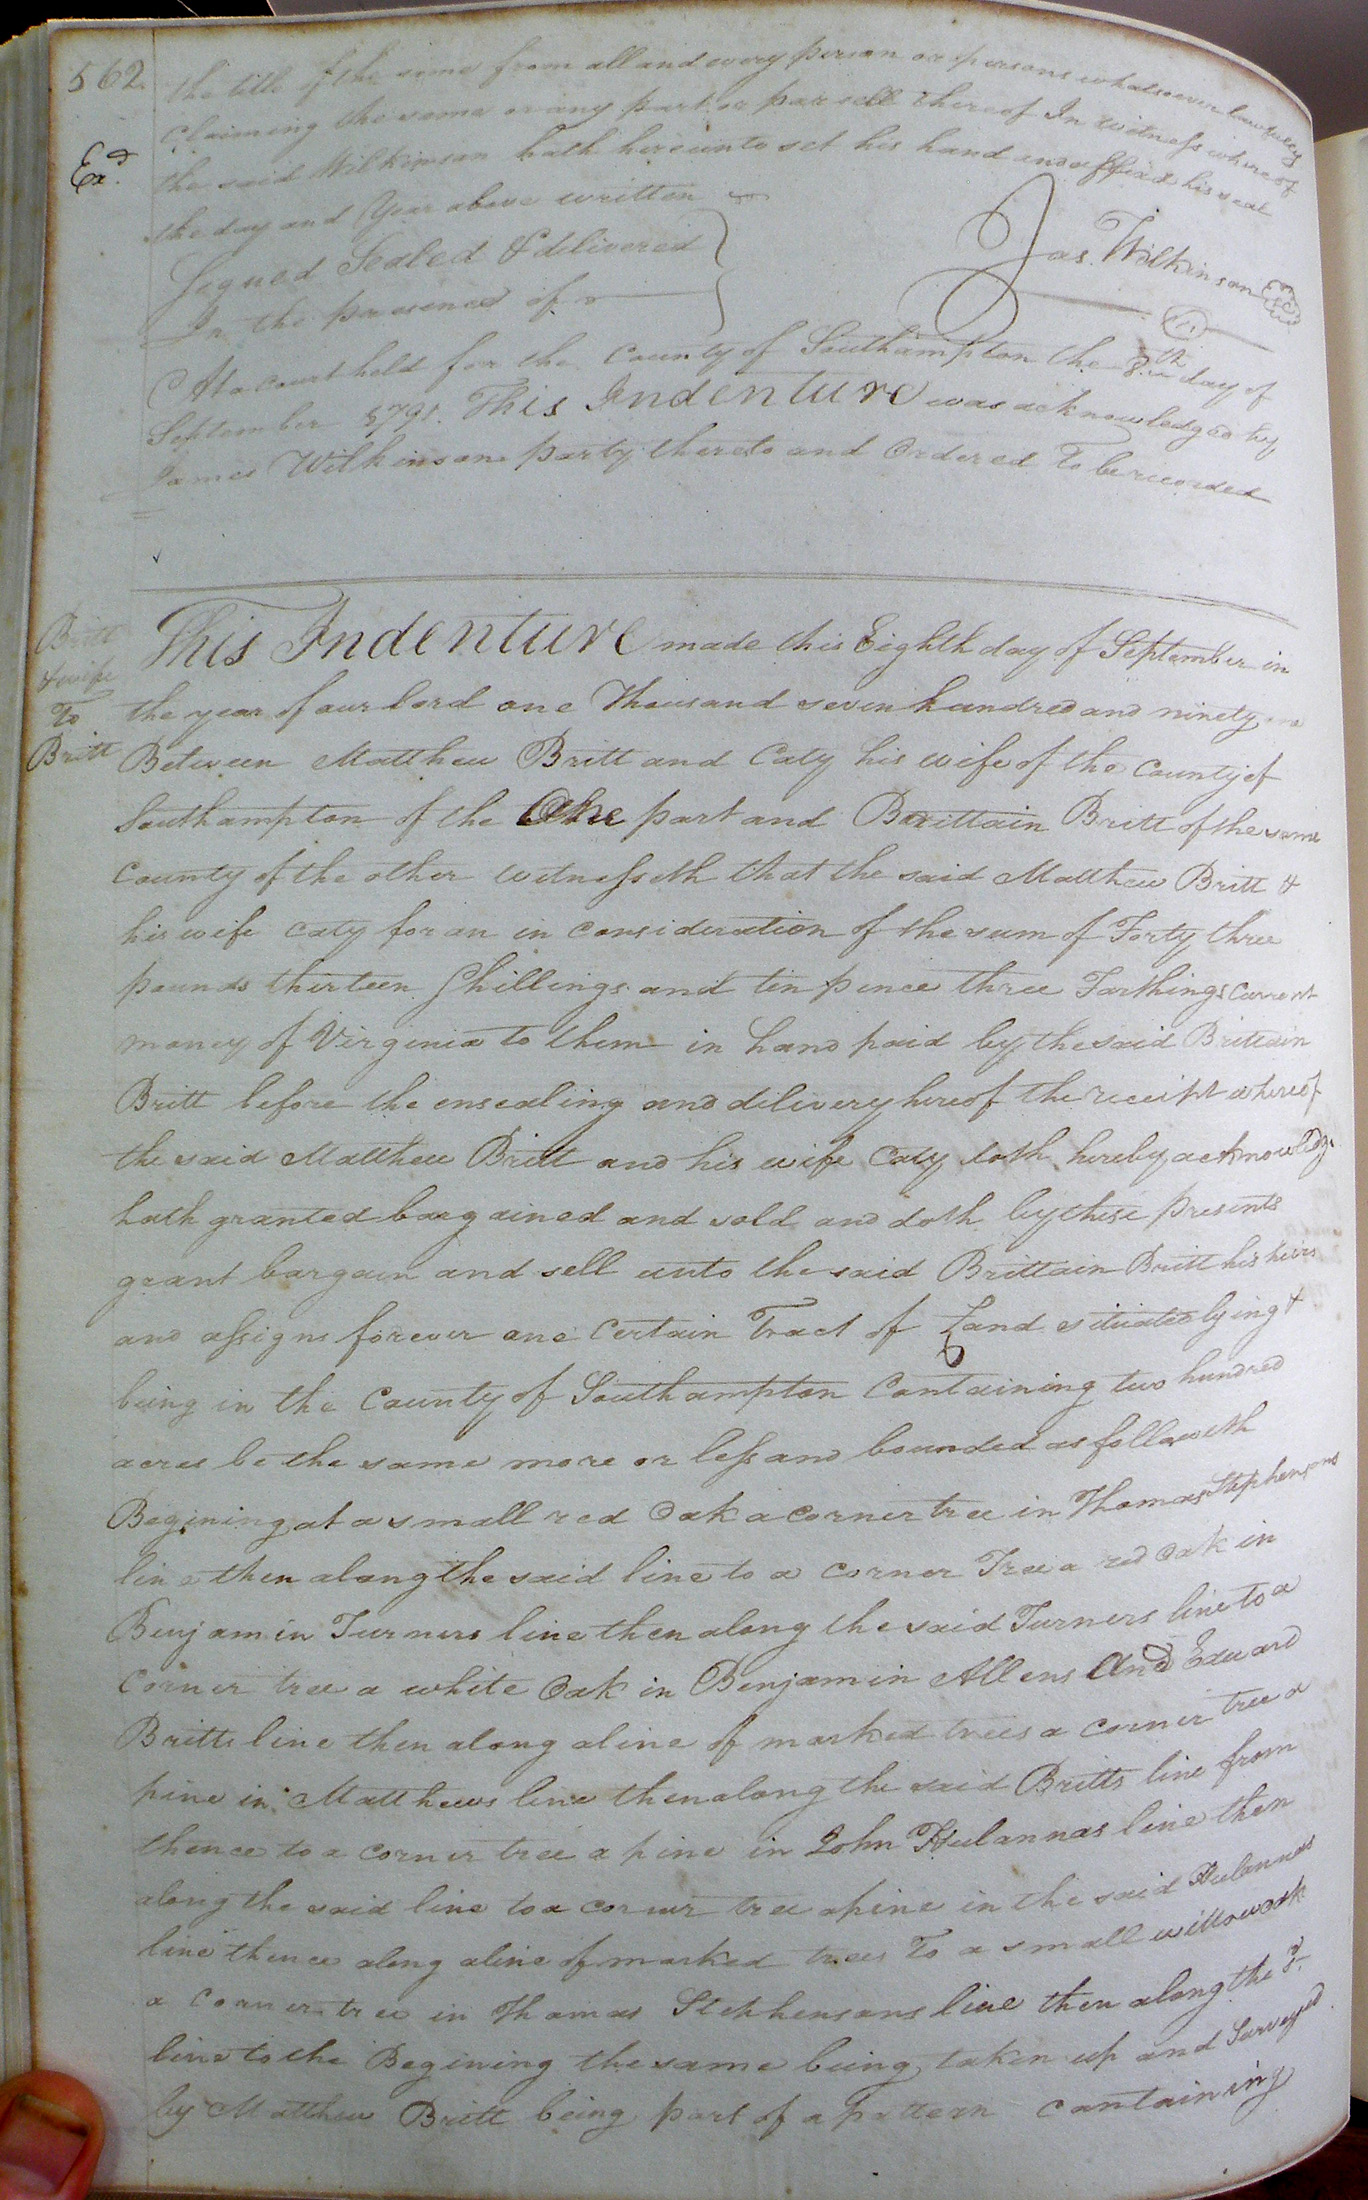 562
the title of the same from all and every person or persons whatsoever lawfully
Claiming the same or any part or parsell thereof In witness whereof
Exd.
the said Wilkinson hath hereunto set his hand and affixd his seal
the day and Year above written
Signed Sealed & delivered
In the presence of
Jas. Wilkinson
At a court held for the County of Southampton the 8th day of
September 1791. This Indenture was acknowledged by
James Wilkinson party thereto and Ordered To be recorded
Britt
& wife
To
Britt
This Indenture made this Eighth day of September in
the year of our lord one Thousand seven hundred and ninety one
Between Matthew Britt and Caty his wife of the County of
Southampton of the One part and Brittain Britt of the same
County of the other witnesseth that the said Matthew Britt &
his wife Caty for an in consideration of the sum of Forty three
pounds thirteen Shillings and ten pence three Farthings Current
money of Virginia to them in hand paid by the said Brittain
Britt before the ensealing and delivery hereof the receipt whereof
the said Matthew Britt and his wife Caty doth hereby acknowledge
hath granted bargained and sold and doth by these presents
grant bargain and sell unto the said Brittain Britt his heirs
and assigns forever one Certain Tract of Land situated lying &
being in the County of Southampton Containing two hundred
acres be the same more or less and bounded as followeth
Begining at a small red Oak a corner tree in Thomas Stephensons
line then along the said line to a corner Tree a red oak in
Benjamin Turners line then along the said Turners line to a
Corner tree a white Oak in Benjamin Allens And Edward
Britts line then along a line of marked trees a corner tree a
pine in Matthews line then along the said Britts line from
thence to a corner tree a pine in John Hulannas line then
along the said line to a corner tree a pine in the said Hulannas
line thence along a line of marked trees To a small willow oak
a Corner tree in Thomas Stephensons line then along the sd.
line to the Begining the same being taken up and Surveyed
by Matthew Britt being part of a pattern containing